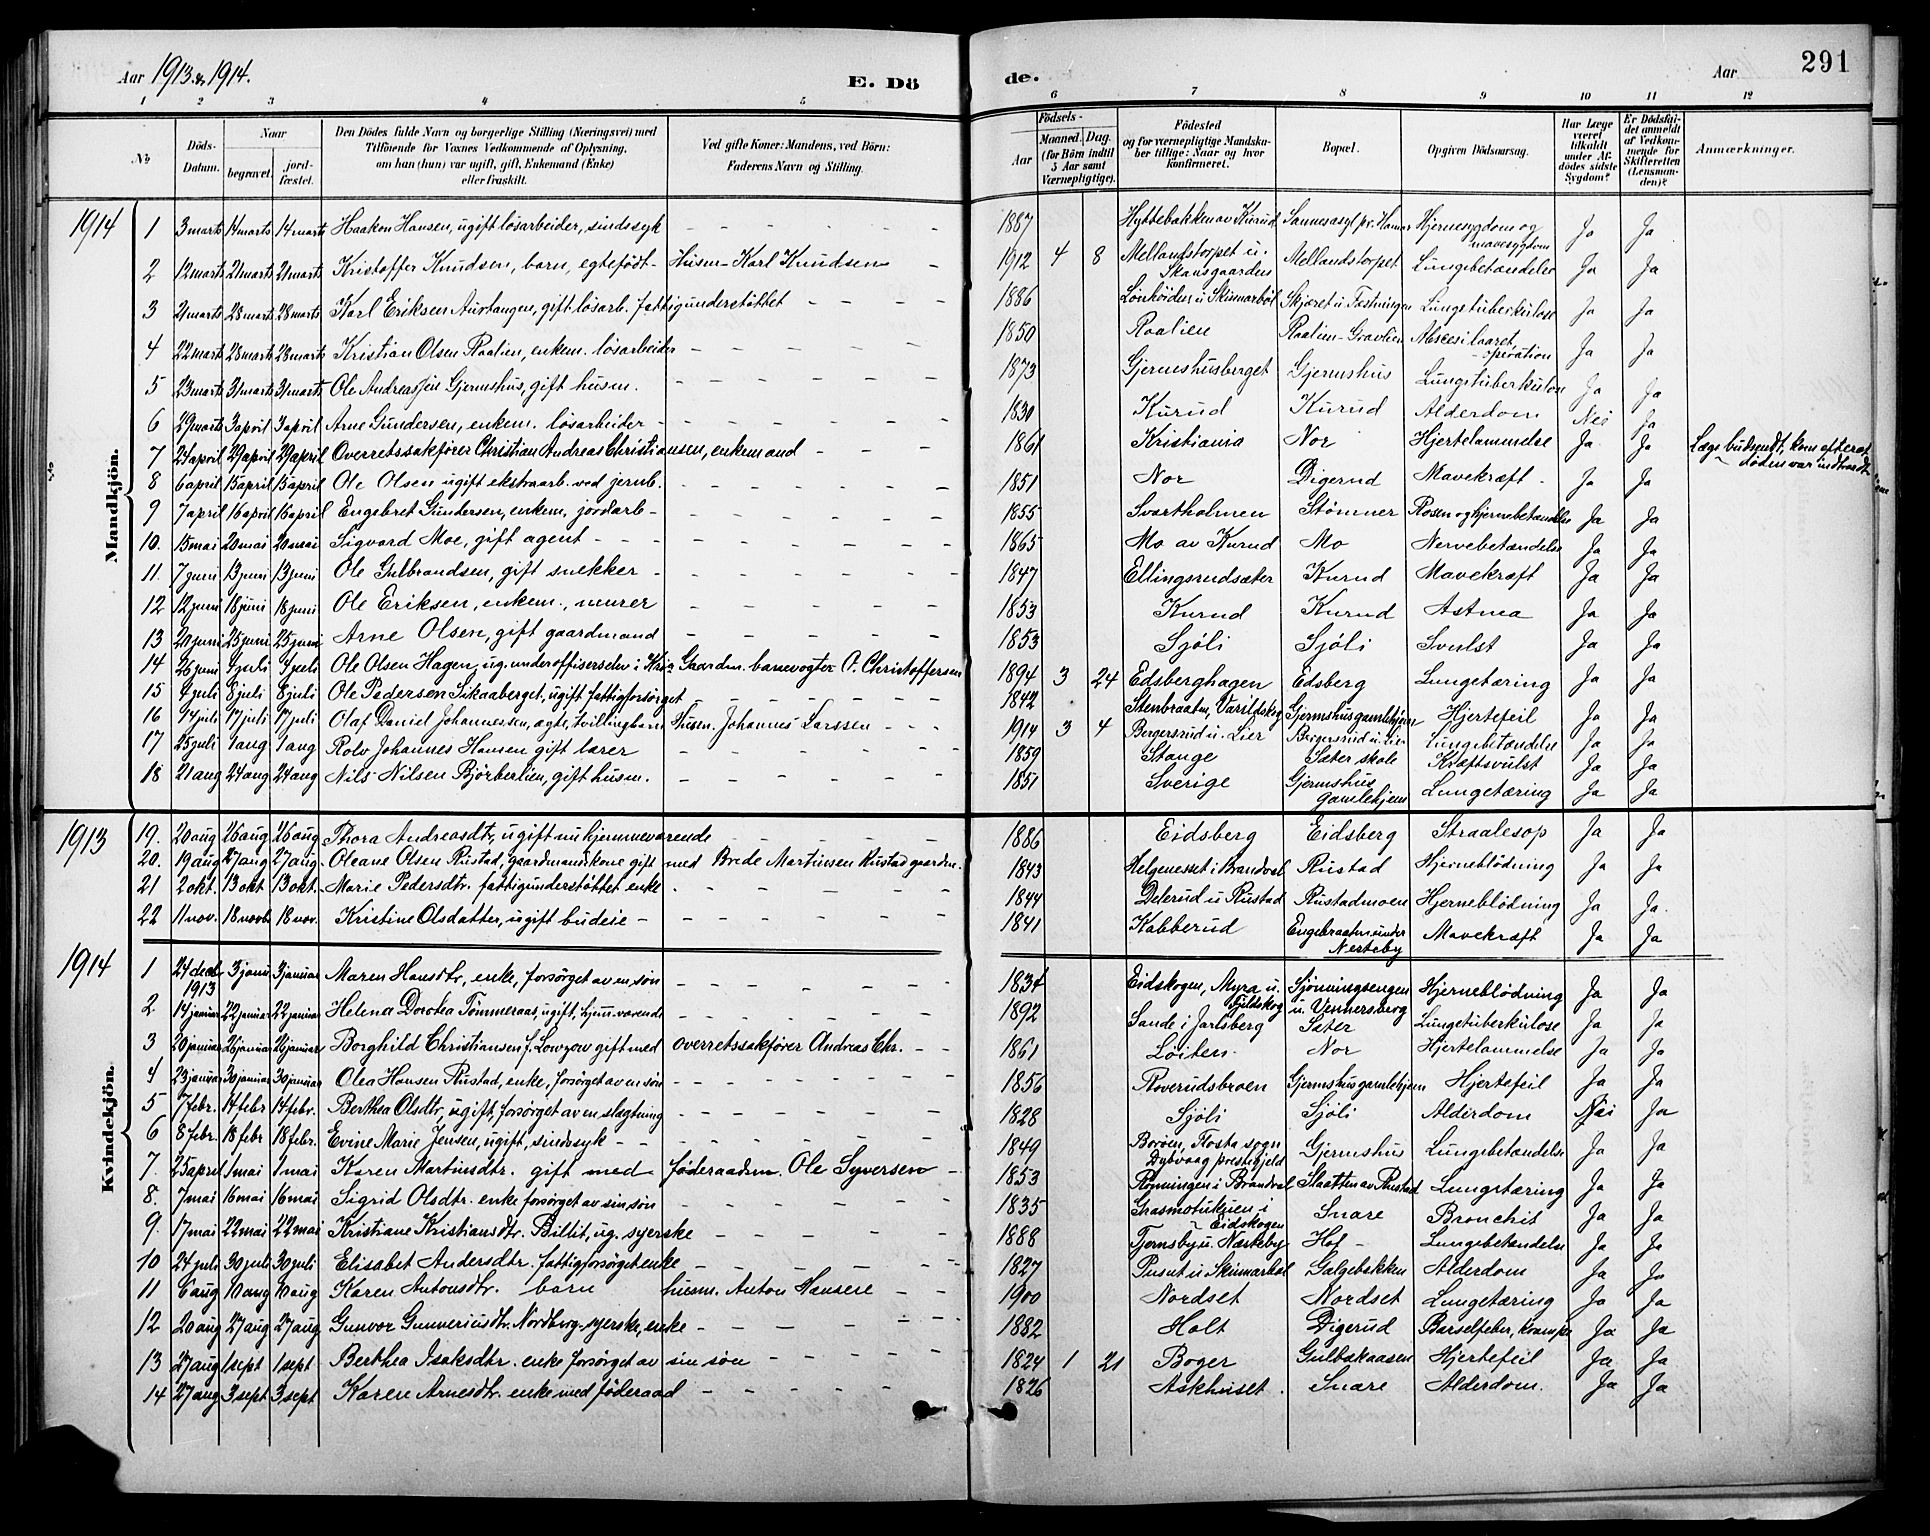 Aar 1913 & 1914.
E. Döde.
Aar
291
1 2 3 4 5 6 7 8 9 10 11 12
No
Döds-Datum.
Naar
begravet.
jordfæstet.
Den Dödes fulde Navn og borgerlige Stilling (Næringsvei) med Tilföiende for Voxnes Vedkommende af Oplysning, om han (hun) var ugift, gift, Enkemand (Enke) eller fraskilt.
Ved gifte Koner: Mandens, ved Börn: Faderens Navn og Stilling.
Födsels-
Aar
Maaned. Dag.
(for Börn indtil 5 Aar samt Værnepligtige).
Födested og for værnepligtige Mandskaber tillige: Naar og hvor konfirmeret.
Bopæl.
Opgiven Dödsaarsag.
Har Læge været tilkaldt under Afdödes sidste Sygdom?
Er Dödsfaldet anmeldt af Vedkommende for Skifteretten (Lensmanden)?
Anmærkninger.
Mandkjön.
1914 1 3 marts 14 marts 14 marts Haakon Hansen, ugift løsarbeider, sindssyk 1887 Hyttebakken av Kurud Sannesasyl pr. Hamar Hjernesygdom og mavesygdom Ja Ja
2 12 marts 21 marts 21 marts Kristoffer Knudsen, barn, egtefødt Husm. Karl Knudsen 1912 4 8 Mellandstorpet u. Skansgaarden Mellandstorpet Lungebetændelse Ja Ja
3 21 marts 28 marts 28 marts Karl Eriksen Aurtangen, gift løsarb. fattigunderstøttet 1886 Lønhöiden u Skinnarböl Skjæret u. Festningen Lungetuberkulose Ja Ja
4 22 marts 28 marts 28 marts Kristian Olsen Raalien, enkem. løsarbeider 1850 Raalien Raalien-Gravlien Abscesilaaret, operation Ja Ja
5 23 marts 31 marts 31 marts Ole Andreassen Gjermshus, gift husm. 1873 Gjermshusberget Gjermshus Lungetuberkulose Ja Ja
6 29 marts 3 april 3 april Arne Gundersen, enkem. løsarbeider 1830 Kurud Kurud Alderdom Nei Ja
7 24 april 29 april 29 april Overretssakfører Christian Andreas Christiansen, enkemand 1861 Kristiania Nor Hjertelammelse Ja Ja Læge budsendt, kom efterat døden var indtraadt
8 6 april 15 april 15 april Ole Olsen ugift ekstraarb. ved jernb. 1851 Nor Digerud Mavekræft Ja Ja
9 7 april 16 april 16 april Engebret Gundersen, enkem. jordarb 1855 Svartholmen Stömner Rosen og hjernebetændelse Ja Ja
10. 15 mai 20 mai 20 mai Sigvard Moe, gift agent 1865 Mo av Kurud Mo Nervebetændelse Ja Ja
11. 7 juni 13 juni 13 juni Ole Gulbrandsen, gift snekker 1847 Ellingsrudsæter Kurud Mavekræft Ja Ja
12 12 juni 18 juni 18 juni Ole Eriksen, enkem., murer 1853 Kurud Kurud Astma Ja Ja
13 20 juni 25 juni 25 juni Arne Olsen, gift gaardmand 1853 Sjöli Sjöli Svulst Ja Ja
14 26 juni 4 juli 4 juli Ole Olsen Hagen, ug. underoffiserselev i Kr.a Gaardm. banevogter O. Christoffersen 1894 3 24 Edsberghagen Edsberg Lungetæring Ja Ja
15 4 juli 8 juli 8 juli Ole Pedersen Sikaaberget, ugift fattigforsørget 1842 Stenbraaten, Varildskog Gjermshusgamlehjem Hjertefeil Ja Ja
16 14 juli 17 juli 17 juli Olaf Daniel Johannessen, ægte, tvillingbarn Husm. Johannes Larssen 1914 3 4 Bergersrud u. Lier Bergersrud u. Lier Lungebetændelse Ja Ja
17 25 juli 1 aug 1 aug Rolv Johannes Hansen gift lærer 1859 Stange Sæter skole Kræftsvulst Ja Ja
18 21 aug 24 aug 24 aug Nils Nilsen Bjørberlien, gift husm. 1851 Sverige Gjermshus Gamlehjem Lungetæring Ja Ja
Kvindekjön.
1913 19. 20 aug 26 aug 26 aug Thora Andreasdtr, ugift nu hjemmeværende 1886 Eidsberg Eidsberg Straalesop Ja Ja
20. 19 aug 27 aug 27 aug. Oleane Olsen Rustad, gaardmandskone gift med Brede Martinsen Rustad gaardm. 1843 Helgenesset i Brandval Rustad Hjerneblödning Ja Ja
21 2 okt. 13 okt 13 okt. Marie Pedersdtr. fattigunderstøttet enke 1844 Delerud u Rustad Rustadmoen Hjerneblödning Ja Ja.
22 11 nov. 18 novb 18 nov. Kristine Olsdatter, ugift budeie 1841 Kabberud Engebraaten under Nerteby Mavekræft Ja Ja
1914 1 24 decb 1913 3 janu 3 januar Maren Hansdtr, enke, forsørget av en søn 1834 Eidskogen, Myra u. Fjeldskog Sjönningsengen u. Vennersberg Hjerneblödning Ja Ja
2. 14 januar 22 januar 22 januar Helena Dorotea Tömmeraas, ugift, hjem.værende 1892 Sande i Jarlsberg Sæter Lungetuberkulose Ja Ja
3 20 januar 26 januar 26 januar Borghild Christiansen f. Lowzow gift med overretssakfører Andreas Chr. 1861 Løiten Nor Hjertelammelse Ja Ja
4 23 januar 30 januar 30 januar Olea Hansen Rustad, enke, forsørget av en søn 1856 Roverudsbroen Gjermshusgamlehjem Hjertefeil Ja Ja
5 7 febr. 14 febr 14 febr. Berthea Olsdtr, ugift, forsørget av en slægtning 1828 Sjöli Sjöli Alderdom Nei Ja
6 8 febr. 18 febr 18 febr. Evine Marie Jensen, ugift, sindssyk 1849 Boröen, Flosta sogn Dybvaag prestegjeld Gjermshus Lungebetændelse Ja Ja
7. 25 april 1 mai 1 mai Karen Martinsdtr. gift med føderaadm. Ole Syversen 1853 Rønningen i Brandval Slaatten av Rustad Lungetæring Ja Ja
8. 7 mai 16 mai 16 mai Sigrid Olsdtr. enke forsørget av sin søn 1835 Grasmotukuien i Eidskogen Snare Bronchit Ja Ja
9. 17 mai 22 mai 22 mai Kristiane Kristiansdtr. Billit, ug. syerske 1888 Tjernsby u. Nærteby Hof Lungebetændelse Ja Ja
10 24 juli 30 juli 30 juli Elisabet Andersdtr. fattigforsørget enke 1827 Pusut u Skinnarböl Galgebakken Alderdom Ja Ja
11 6 aug 10 aug 10 aug Karen Antonsdtr. barn husm. Anton Hansen 1900 Nordset Nordset Lungetæring Ja Ja
12 20 aug 27 aug 27 aug Gunvor Gunveriusdtr. Nordberg syerske, enke 1882 Holt Digerud Barselfeber, krampe Ja Ja
13 27 aug 1 sept 1 sept Berthea Isaksdtr. enke forsørget av sin søn 1824 1 21 Boger Gulbskaasen Hjertefeil Ja Ja
14 27 aug 3 sept 3 sept Karen Arnesdtr. enke med føderaad 1826 Askhuset Snare Alderdom. Ja Ja